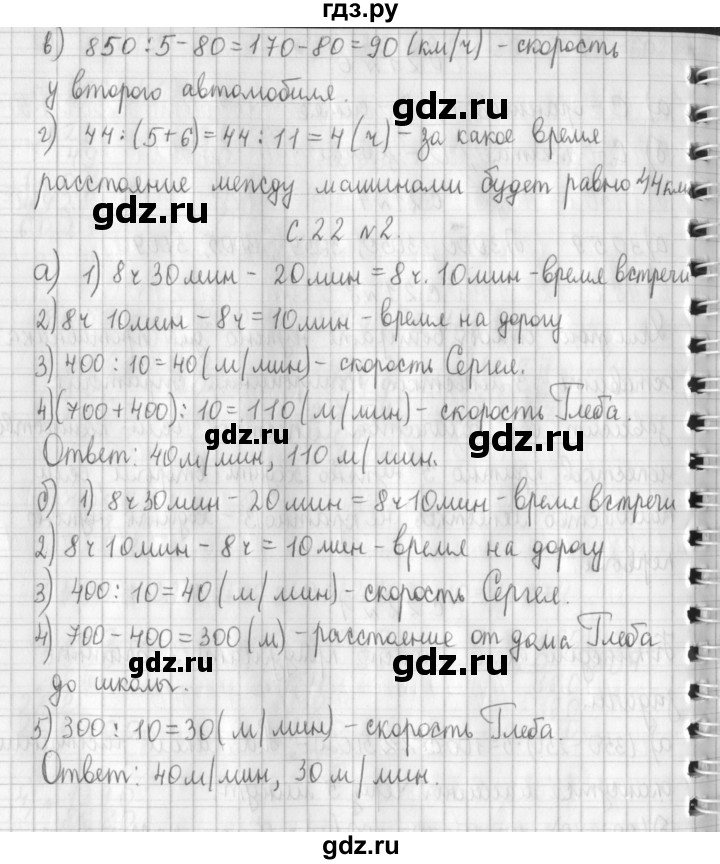 гдз.ру
в) 850 : 5 - 80 = 170 - 80 = 90 (км/ч) - скорость
у второго автомобиля.
gdz.ru
г) 44 : (5+6) = 44 : 11 = 4 (ч) - за какое время
расстояние между машинами будет равно 44 км
gdz.ru gdz.ru
с. 22 №2.
а) 1) 8ч 30мин - 20мин = 8ч. 10мин - время встречи
2) 8ч 10мин - 8ч = 10мин - время на дорогу
3) 400 : 10 = 40 (м/мин) - скорость Сергея.
4) (700 + 400) : 10 = 110 (м/мин) - скорость Глеба.
gdz.ru gdz.ru
Ответ: 40м/мин, 110 м/мин.
б) 1) 8ч 30мин - 20мин = 8ч 10мин - время встречи
2) 8ч 10мин - 8ч = 10мин - время на дорогу
3) 400 : 10 = 40 (м/мин) - скорость Сергея.
4) 700 - 400 = 300 (м) - расстояние от дома Глеба
gdz.ru gdz.ru
до школы.
5) 300 : 10 = 30 (м/мин) - скорость Глеба.
Ответ: 40м/мин, 30м/мин.
gdz.ru